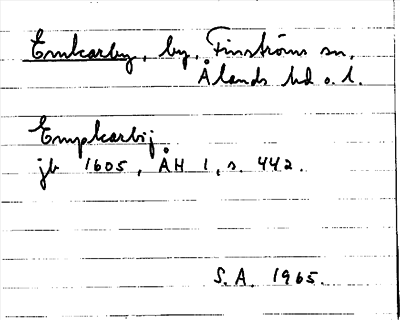 Emkarby, by, Finströms sn,
Ålands hd o. l.
Empkarbij
jb 1605, ÅH 1, s. 442.
S.A. 1965.